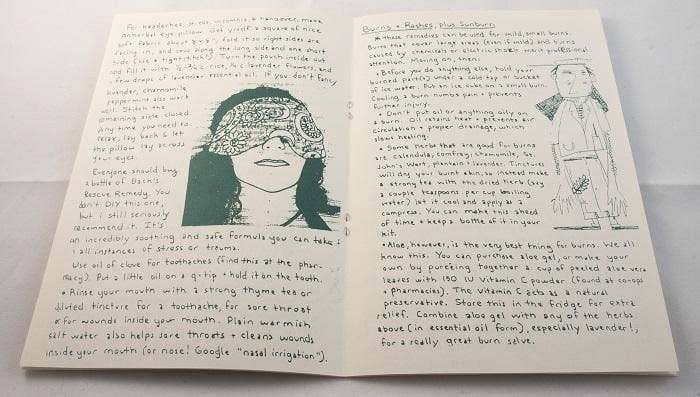 For headaches, stress, insomnia, & hangover, make
an herbal eye pillow. Get yrself a square of nice
soft fabric about 8 x 9, fold it so right sides are
facing in, and sew along the long side and one short
side (use a tight stitch!). Turn the pouch inside out
and fill it with ½ c. rice, ¼ c lavender flowers, and
a few drops of lavender essential oil. If you don't fancy
lavender, chamomile,
peppermint also work
well. Stitch the
remaining side closed.
Any time you need to
relax, lay back & let
the pillow lay across
your eyes.
Everyone should buy
a bottle of Bach's
Rescue Remedy. You
don't DIY this one,
but i still seriously
recommend it. It's
an incredibly soothing and safe formula you can take
all instances of stress or trauma.
Use oil of clove for toothaches (find this at the phar-
macy). Put a little oil on a q-tip + hold it on the tooth.
• Rinse your mouth with a strong thyme tea or
diluted tincture for a toothache, for sore throat
or for wounds inside your mouth. Plain warmish
salt water also helps sore throats + cleans wounds
inside your mouth (or nose! Google "nasal irrigation").
Burns + Rashes, plus Sunburn
* these remedies can be used for mild, small burns.
Burns that cover large areas (even if mild) and burns
caused by chemicals or electric shock merit professional
attention. Moving on, then:
• Before you do anything else, hold your
burned part(s) under a cold tap or bucket
of ice water. Put an ice cube on a small burn.
Cooling a burn numbs pain + prevents
further injury.
• Don't put oil or anything oily on
a burn. Oil retains heat + prevents air
circulation + proper drainage, which
slows healing.
• Some herbs that are good for burns
are calendula, comfrey, chamomile, St.
John's Wort, plantain + lavender. Tinctures
will dry your burnt skin, so instead make
a strong tea with the dried herb (say
a couple teaspoons per cup boiling
water) let it cool and apply as a
compress. You can make this ahead
of time + keep a bottle of it in your
kit.
• Aloe, however, is the very best thing for burns. We all
know this. You can purchase aloe gel, or make your
own by pureeing together a cup of peeled aloe vera
leaves with 150 IU Vitamin C powder (found at co-ops
+ pharmacies). The Vitamin C acts as a natural
preservative. Store this in the fridge for extra
relief. Combine aloe gel with any of the herbs
above (in essential oil form), especially lavender!,
for a really great burn salve.